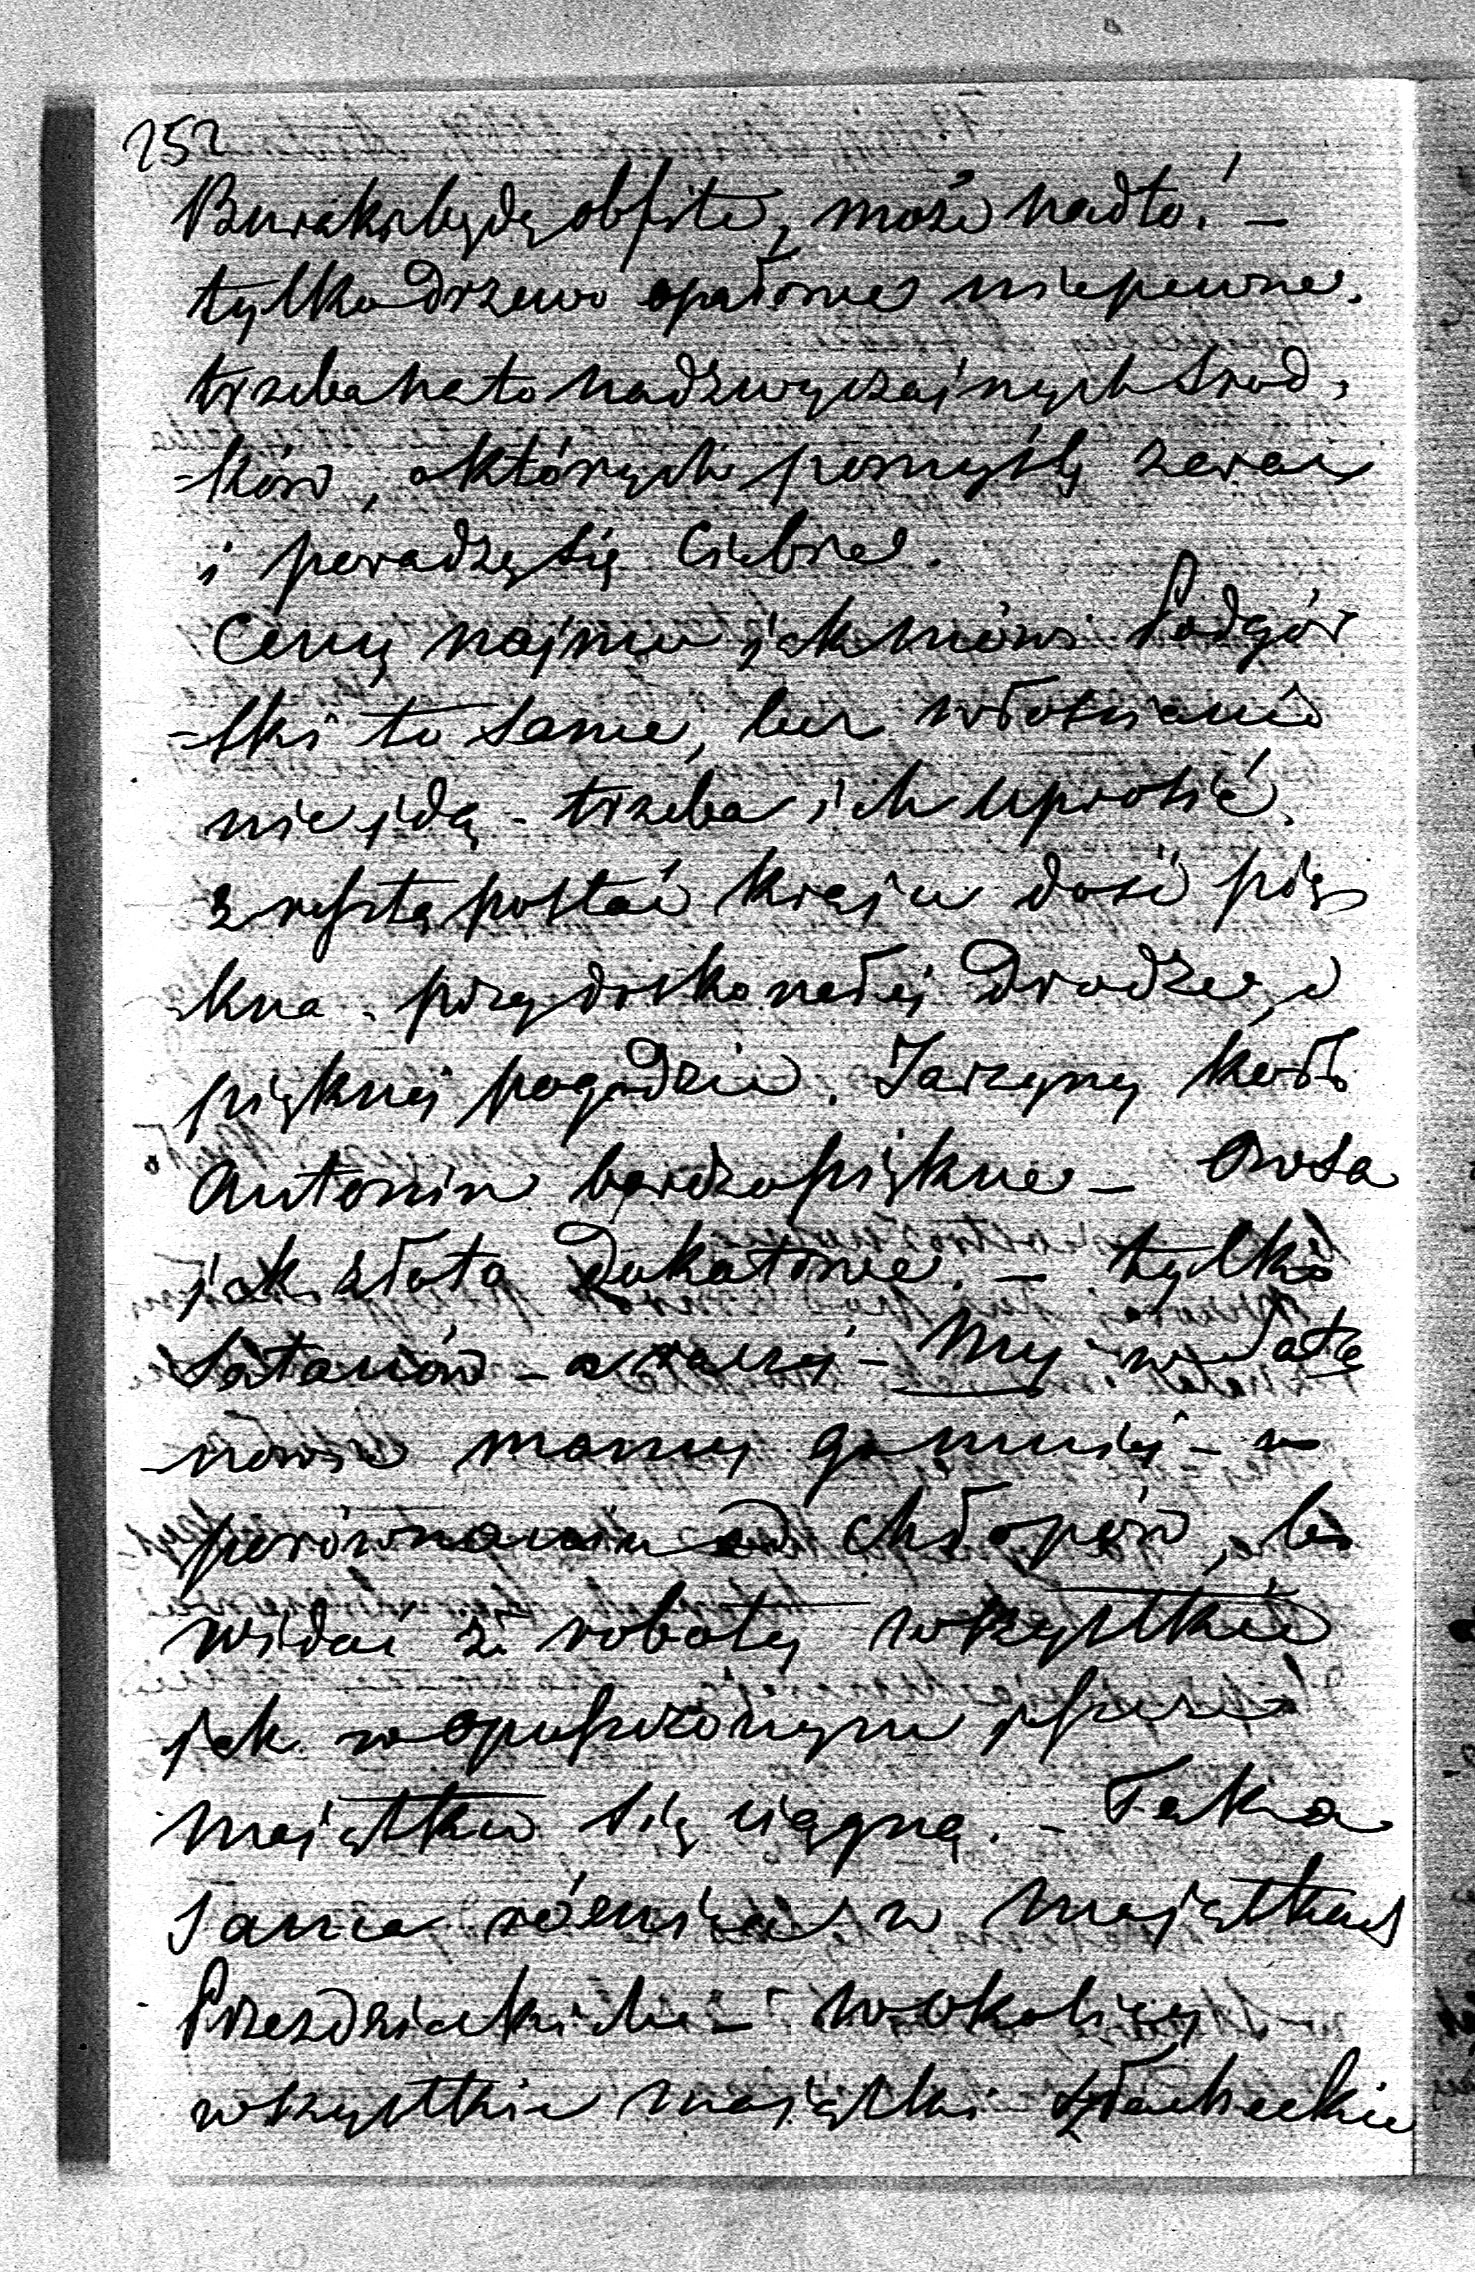 252
Buraki będą obfite, może nadto! –
tylko drzewo opałowe niepewne.
trzeba na to nadzwyczajnych środ,
=ków, o których pomyślę zaraz
i poradzę się Ciebie.
Ceny najmu jak mówi Podgór
=ski te same, lecz włościanie
nie idą – trzeba ich uprosić.
Zresztą postać kraju dość pię
=kna – przy doskonałej drodze, i
pięknej pogodzie. Jarzyny koło
Antonin bardzo piękne – Owsa
jak złoto dukatowe. – tylko
Satanów – a raczej – My w Sata
–nowie mamy gorzej – w
porównaniu od chłopów, bo
widać że roboty wszystkie
jak w opuszczonym jeszcze
majątku się ciągną. – Taka
sama różnica w majątkach
Przezdzieckich – w okolicy
wszystkie majątki szlacheckie